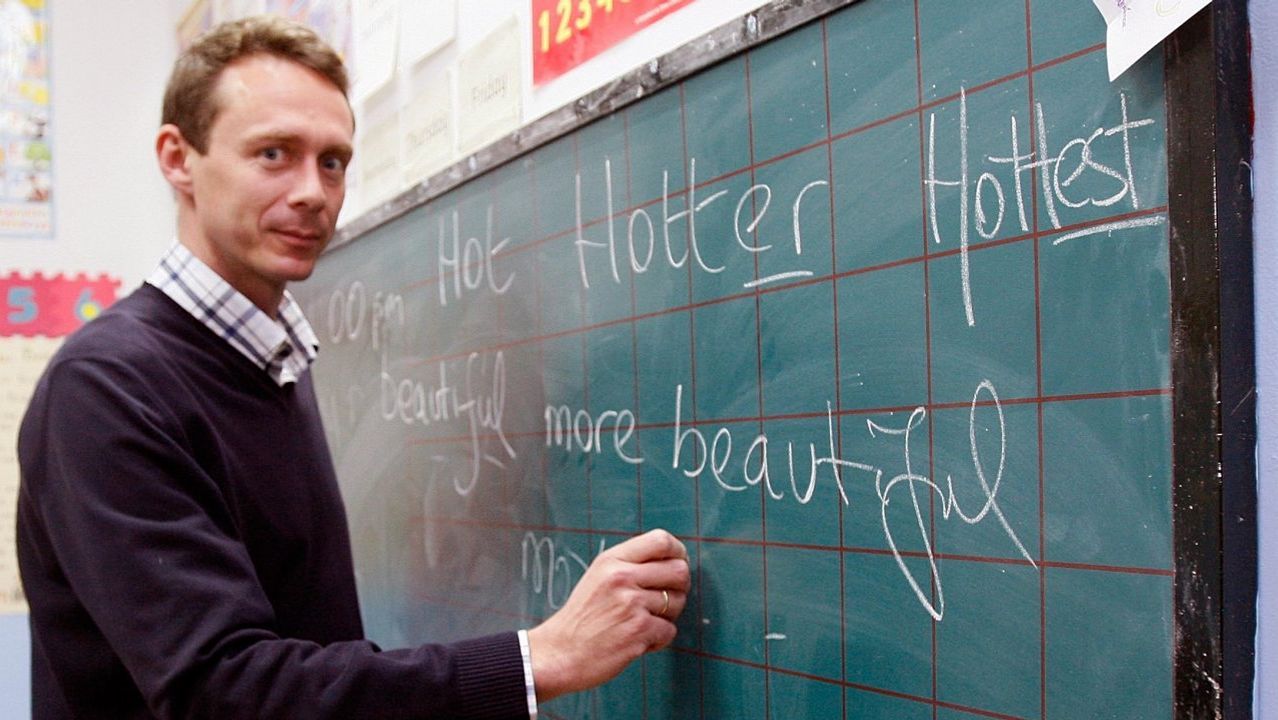 1 2 3 4
Thursday
Friday
5 6
Hot Hotter Hottest
00 pm
beautiful more beautiful